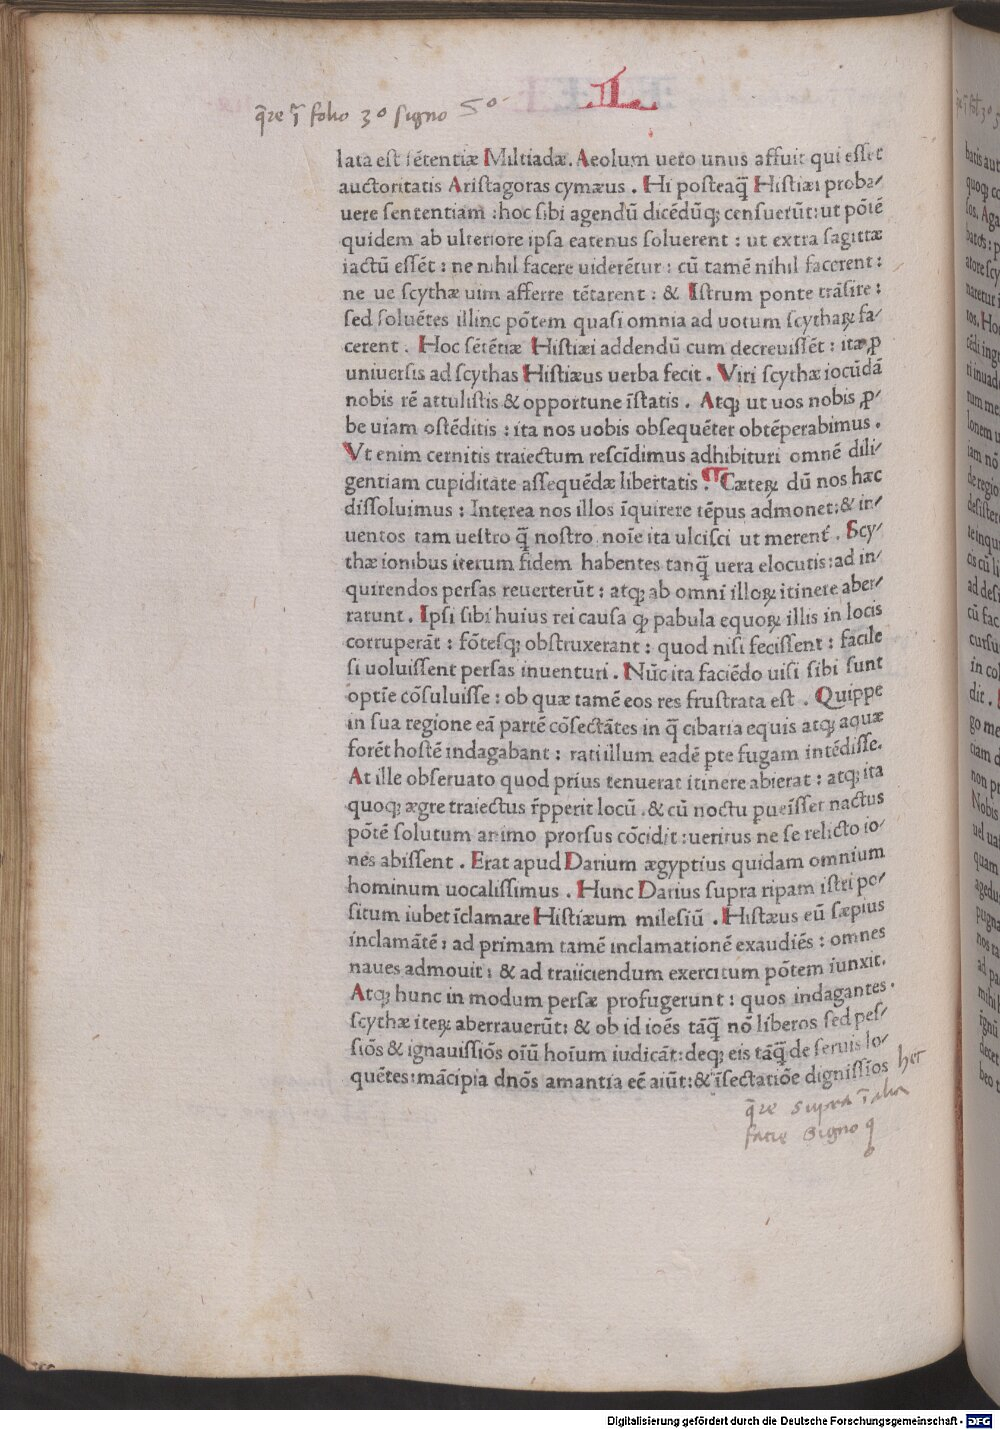 .L.
q̄re ī folio 3º signo 5º
lata est sētentiæ Miltiadæ. Aeolum uero unus affuit qui esset
auctoritatis Aristagoras cymæus . Hi posteaq̄ Histiæi proba-
uere sententiam : hoc sibi agendū dicēdūq; censuerūt: ut pōtē
quidem ab ulteriore ipsa eatenus soluerent : ut extra sagittæ
iactū essēt : ne nihil facere uiderētur : cū tamē nihil facerent :
ne ue scythæ uim afferre tētarent : & Istrum ponte trāsire :
sed soluētes illinc pōtem quasi omnia ad uotum scythaꝝ fa-
cerent . Hoc sētētiæ Histiæi addendū cum decreuissēt : itaꝗ ꝓ
uniuersis ad scythas Histiæus uerba fecit . Viri scythæ iocūdā
nobis rē attulistis & opportune īstatis . Atq; ut uos nobis ꝓ-
be uiam ostēditis : ita nos uobis obsequēter obtēperabimus .
Vt enim cernitis traiectum rescīdimus adhibituri omnē dili-
gentiam cupiditate assequēdæ libertatis . ¶ Cæteꝝ dū nos hæc
dissoluimus : Interea nos illos īquirere tēpus admonet: & in-
uentos tam uestro q̄ nostro noīe ita ulcisci ut merent̄ . Scy-
thæ ionibus iterum fidem habentes tanq̄ uera elocutis: ad in-
quirendos persas reuerterūt : atq; ab omni illoꝝ itinere aber-
rarunt . Ipsi sibi huius rei causa q; pabula equoꝝ illis in locis
corruperāt : fōtesq; obstruxerant : quod nisi fecissent : facile
si uoluissent persas inuenturi . Nūc ita faciēdo uisi sibi sunt
optīe cōsuluisse : ob quæ tamē eos res frustrata est . Quippe
in sua regione eā partē cōsectātes in q̄ cibaria equis atq; aquæ
forēt hostē indagabant : rati illum eadē ꝑte fugam intēdisse.
At ille obseruato quod prius tenuerat itinere abierat : atq; ita
quoq; ægre traiectus r̄pperit locū . & cū noctu ꝑueīsset nactus
pōtē solutum animo prorsus cōcidit : ueritus ne se relicto io-
nes abissent . Erat apud Darium ægyptius quidam omnium
hominum uocalissimus . Hunc Darius supra ripam istri po-
situm iubet īclamare Histiæum milesiū . Histæus eū sæpius
inclamātē : ad primam tamē inclamationē exaudiēs : omnes
naues admouit : & ad traiiciendum exercitum pōtem iunxit.
Atq; hunc in modum persæ profugerunt : quos indagantes .
scythæ iteꝝ aberrauerūt: & ob id ioēs tāq̄ nō liberos sed pes-
siōs & ignauissiōs oīū hoīum iudicāt: deq; eis tāq̄ de seruis lo-
quētes: mācipia dnōs amantia eē aiūt: & īsectatiōe dignissiōs
het
q̄re supra ī alia
facie signo